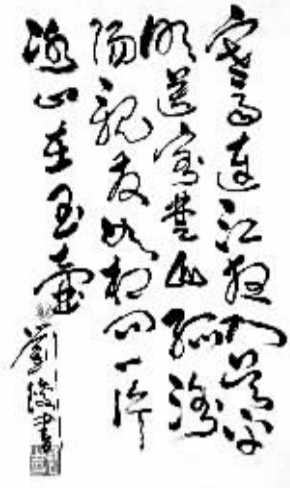 寒雨連江夜入吳平
明送客楚山孤洛
陽親友如相問一片
冰心在玉壺
劉書